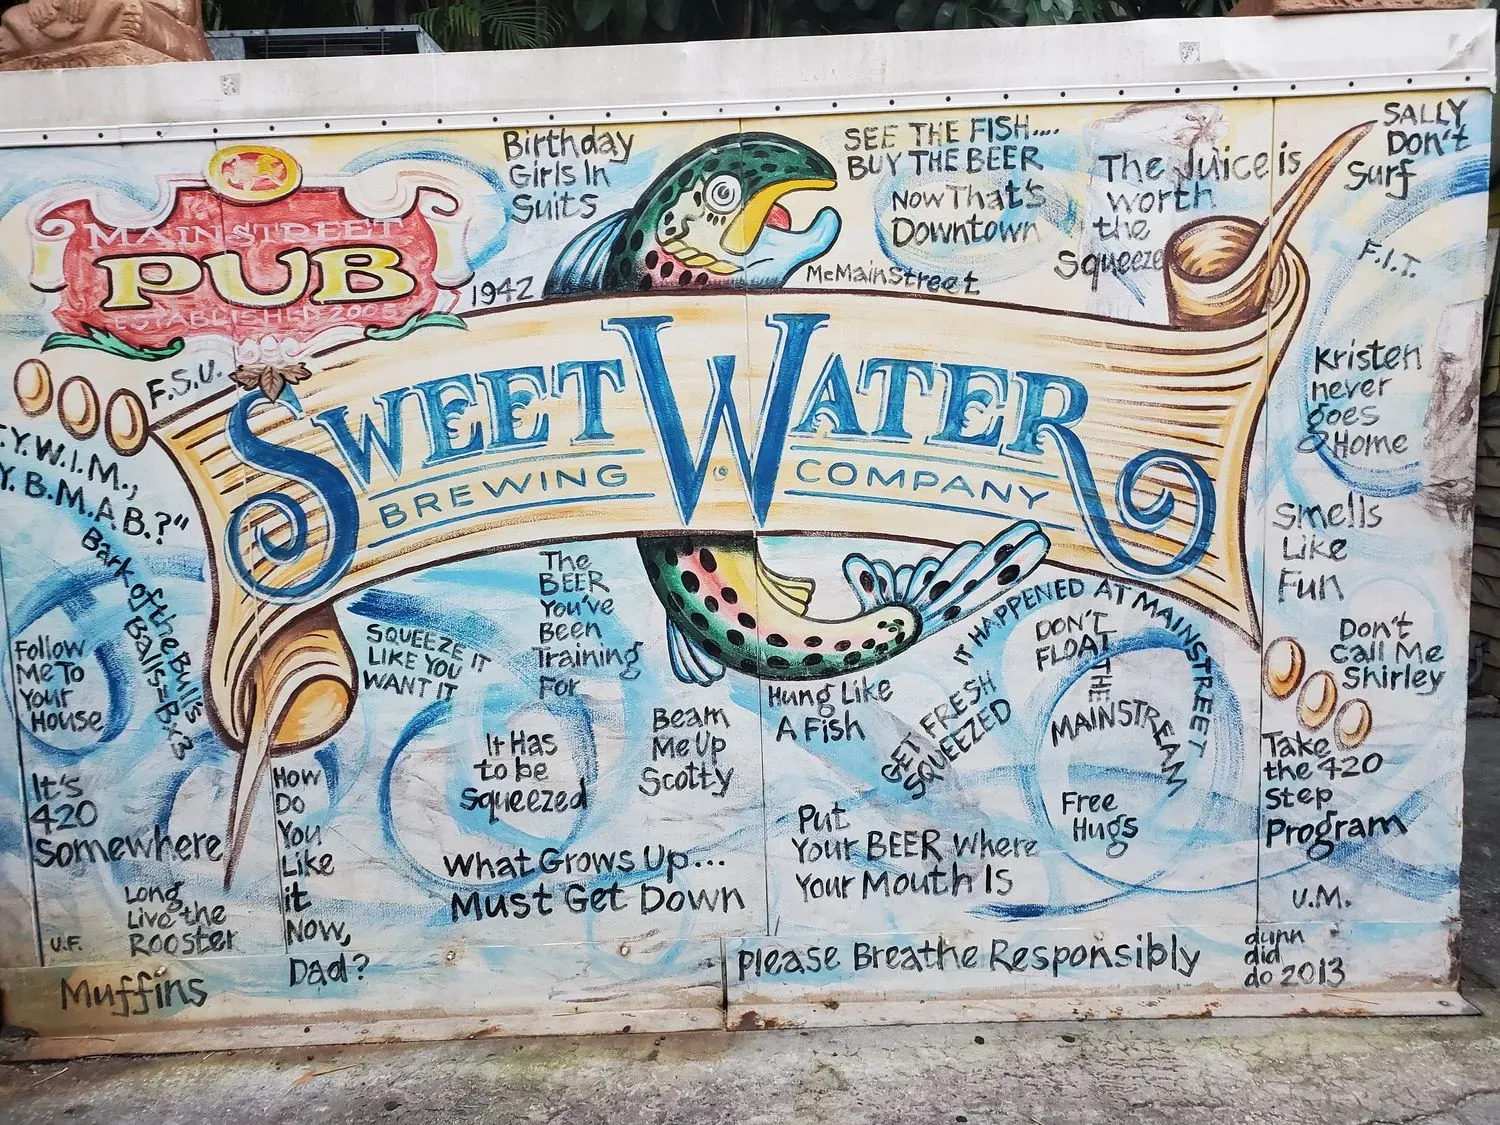 MAINSTREET
PUB
ESTABLISHED 2005
Birthday
Girls In
Suits
1942
SEE THE FISH....
BUY THE BEER
Now That's
Downtown
McMainStreet
The Juice is
worth
the
Squeeze
SALLY
Don't
Surf
F.I.T.
F.S.U.
Y.W.I.M.,
Y.B.M.A.B.?"
SWEETWATER
BREWING COMPANY
Kristen
never
goes
Home
Smells
Like
Fun
Bark of the Bull's
Balls=Bx3
Follow
Me To
Your
House
SQUEEZE IT
LIKE YOU
WANT IT
The
BEER
You've
Been
Training
For
Hung Like
A Fish
IT HAPPENED AT MAINSTREET
DON'T
FLOAT
THE
MAINSTREAM
GET FRESH
SQUEEZED
Don't
Call Me
Shirley
It Has
to be
Squeezed
Beam
Me Up
Scotty
Take
the 420
Step
Program
It's
420
Somewhere
How
Do
You
Like
it
Now,
Dad?
What Grows Up...
Must Get Down
Put
Your BEER Where
Your Mouth Is
Free
Hugs
Long
Live the
ROOSTER
U.F.
Muffins
U.M.
Please Breathe Responsibly
dunn
did
do 2013